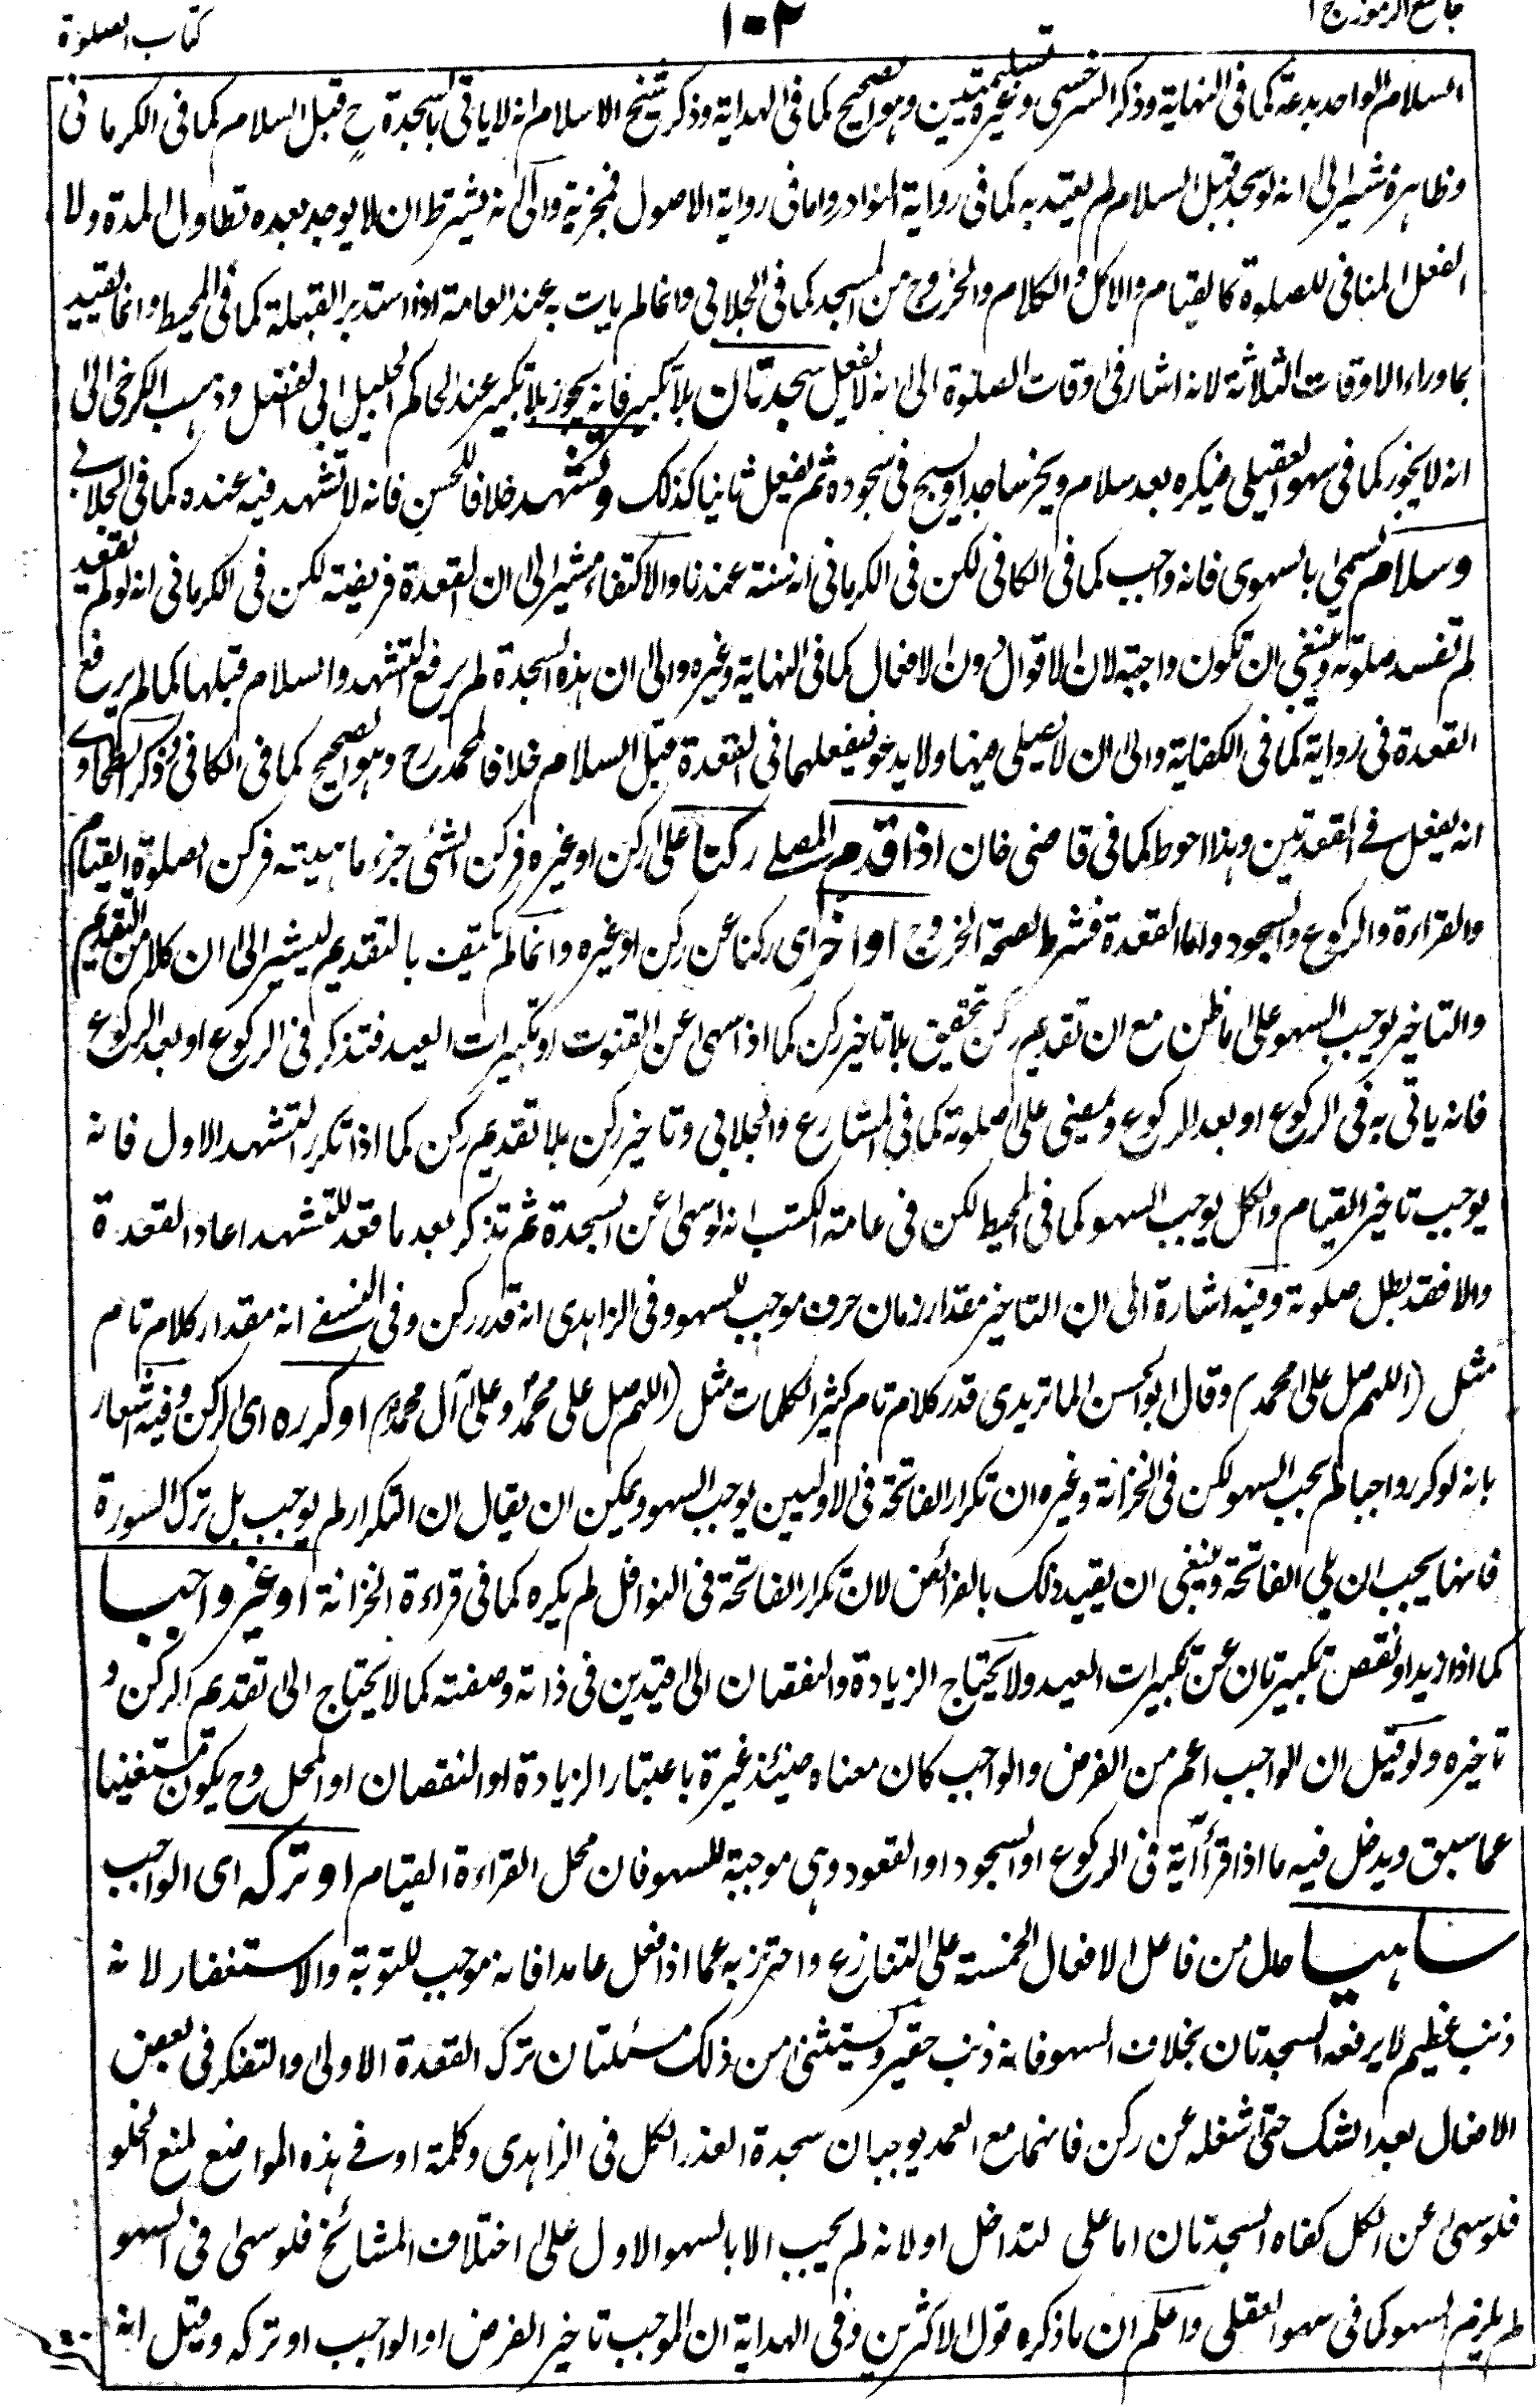 جامع الرموز ج ١
١٠٢
كتاب الصلوة
السلام الواحد بدعة كما فى النهاية وذكر السرخسى وغيره تسليمتين وهو الصحيح كما فى الهداية وذكر شيخ الاسلام انه لا ياتى بالسجدة ح قبل السلام كما فى الكرمانى
وظاهره مشير الى انه لو سجد قبل السلام لم يعتد به كما فى رواية النوادر واما فى رواية الاصول فمجزية والى انه يشترط ان لا يوجد بعده تطاول المدة ولا
الفعل المنافى للصلوة كالقيام والاكل والكلام والخروج من المسجد كما فى الجلابى وانما لم يات به عند العامة اذا استدبر القبلة كما فى المحيط وانما لم تقييد
بما وراء الاوقات الثلاثة لانه اشار فى اوقات الصلوة الى انه لا يفعل سجدتان بلا تكبير فانه يجوز بلا تكبير عند الحاكم الجليل ابى الفضل وذهب الكرخى الى
انه لا يجوز كما فى سهو العقيلى فيكره بعد سلام ويخر ساجدا ويسبح فى سجوده ثم يفعل ثانيا كذلك وتشهد خلافا للحسن فانه لا تشهد فيه عنده كما فى الجلابى
وسلام يسمى بالسهوى فانه واجب كما فى الكافى لكن فى الكرمانى انه سنة عندنا والاكتفاء مشير الى ان القعدة فريضة لكن فى الكرمانى انه لو لم يقعد
لم تفسد صلوته وينبغى ان تكون واجبة لان الاقوال دون الافعال كما فى النهاية وغيره والى ان هذه السجدة لم يرفع التشهد والسلام قبلها كما لم يرفع
القعدة فى رواية كما فى الكفاية والى ان لا يصلى فيها ولا يدعو فيفعلهما فى القعدة قبل السلام خلافا لمحمد رح وهو الصحيح كما فى الكافى وذكر الطحاوى
انه يفعل فى القعدتين وهذا احوط كما فى قاضى خان اذا قدم المصلى ركنا على ركن او غيره فركن الشئ جزء ماهيته فركن الصلوة القيام
والقراءة والركوع والسجود واما القعدة فشرط لصحة الخروج او اخر اى ركنا عن ركن او غيره وانما لم يكتف بالتقديم ليشير الى ان كلا من التقديم
والتاخير يوجب السهو على ما ظن مع ان تقديم ركن تحقيق بلا تاخير ركن كما اذا سهى عن القنوت او تكبيرات العيد فتذكر فى الركوع او بعد الركوع
فانه ياتى به فى الركوع او بعد الركوع ويمضى على صلوته كما فى المشارع والجلابى وتاخير ركن بلا تقديم ركن كما اذا تكرر التشهد الاول فانه
يوجب تاخير القيام والكل يوجب السهو كما فى المحيط لكن فى عامة الكتب انه لو سهى عن السجدة ثم تذكر بعد ما قعد للتشهد اعاد القعدة
والا فقد بطل صلوته وفيه اشارة الى ان التاخير مقدار زمان حرف موجب للسهو وفى الزاهدى انه قدر ركن وفى النسفى انه مقدار كلام تام
مثل (اللهم صل على محمد) وقال ابو الحسن الماتريدى قدر كلام تام كثير الكلمات مثل (اللهم صل على محمد وعلى آل محمد) او كرره اى الركن وفيه اشعار
بانه لو كرر واجبا لم يجب السهو لكن فى الخزانة وغيره ان تكرار الفاتحة فى الاوليين يوجب السهو ويمكن ان يقال ان التكرار لم يوجب بل ترك السورة
فانها يجب ان يلى الفاتحة وينبغى ان يقيد ذلك بالفرائض لان تكرار الفاتحة فى النوافل لم يكره كما فى قراءة الخزانة او غير واجبا
كما اذا زيد او نقص تكبيرتان عن تكبيرات العيد ولا يحتاج الزيادة والنقصان الى قيدين فى ذاته وصفته كما لا يحتاج الى تقديم الركن و
تاخيره ولو قيل ان الواجب اعم من الفرض والواجب كان معناه حينئذ غيره باعتبار الزيادة او النقصان او المحل وح يكون مستغنيا
عما سبق ويدخل فيه ما اذا قرأ آية فى الركوع او السجود او القعود وهى موجبة للسهو فان محل القراءة القيام او تركه اى الواجب
ساهيا حال من فاعل الافعال الخمسة على التنازع واحترز به عما اذا فعل عامدا فانه موجب للتوبة والاستغفار لانه
ذنب عظيم لا يرفعه السجدتان بخلاف السهو فانه ذنب حقير ويستثنى من ذلك مسئلتان ترك القعدة الاولى والتفكر فى بعض
الافعال بعد الشك حتى شغله عن ركن فانهما مع العمد يوجبان سجدة العذر الكل فى الزاهدى وكلمة او فى هذه المواضع لمنع الخلو
فلو سهى عن الكل كفاه السجدتان اما على التداخل او لانه لم يجب الا بالسهو الاول على اختلاف المشائخ فلو سهى فى السهو
لم يلزم السهو كما فى سهو العقلى واعلم ان ما ذكره قول الاكثرين وفى الهداية ان الموجب تاخير الفرض او الواجب او تركه وقيل انه